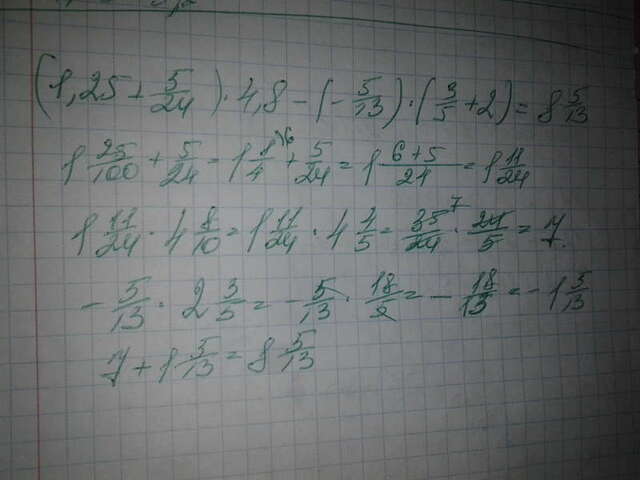 (1,25 + 5/24) · 4,8 - (- 5/13) · (3/5 + 2) = 8 5/13
1 25/100 + 5/24 = 1 1/4 + 5/24 = 1 6+5/24 = 1 11/24
1 11/24 · 4 8/10 = 1 11/24 · 4 4/5 = 35/24 · 24/5 = 7
- 5/13 · 2 3/5 = - 5/13 · 18/5 = - 18/13 = - 1 5/13
7 + 1 5/13 = 8 5/13